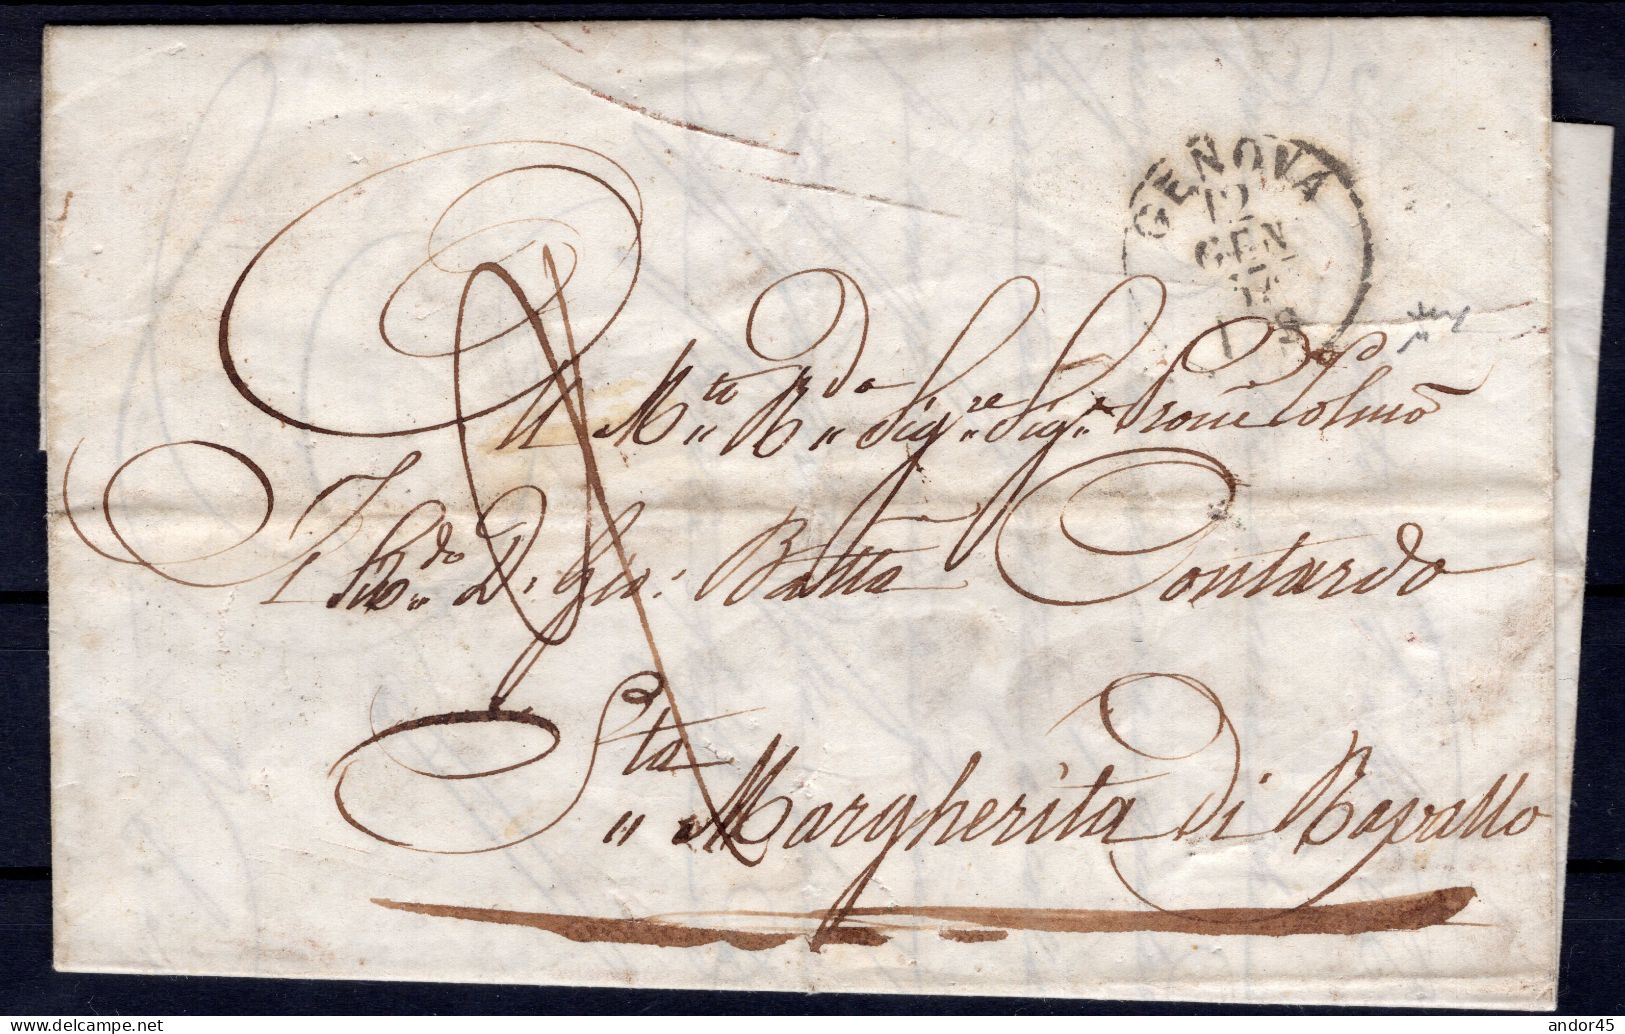 GENOVA
12
GEN
Al M.to R.do Sig.re Sig.r Pron Colmo
Il R.do D. Gio: Batta Contardo
Sta
Margherita Di Rapallo
delcampe.net
andor45